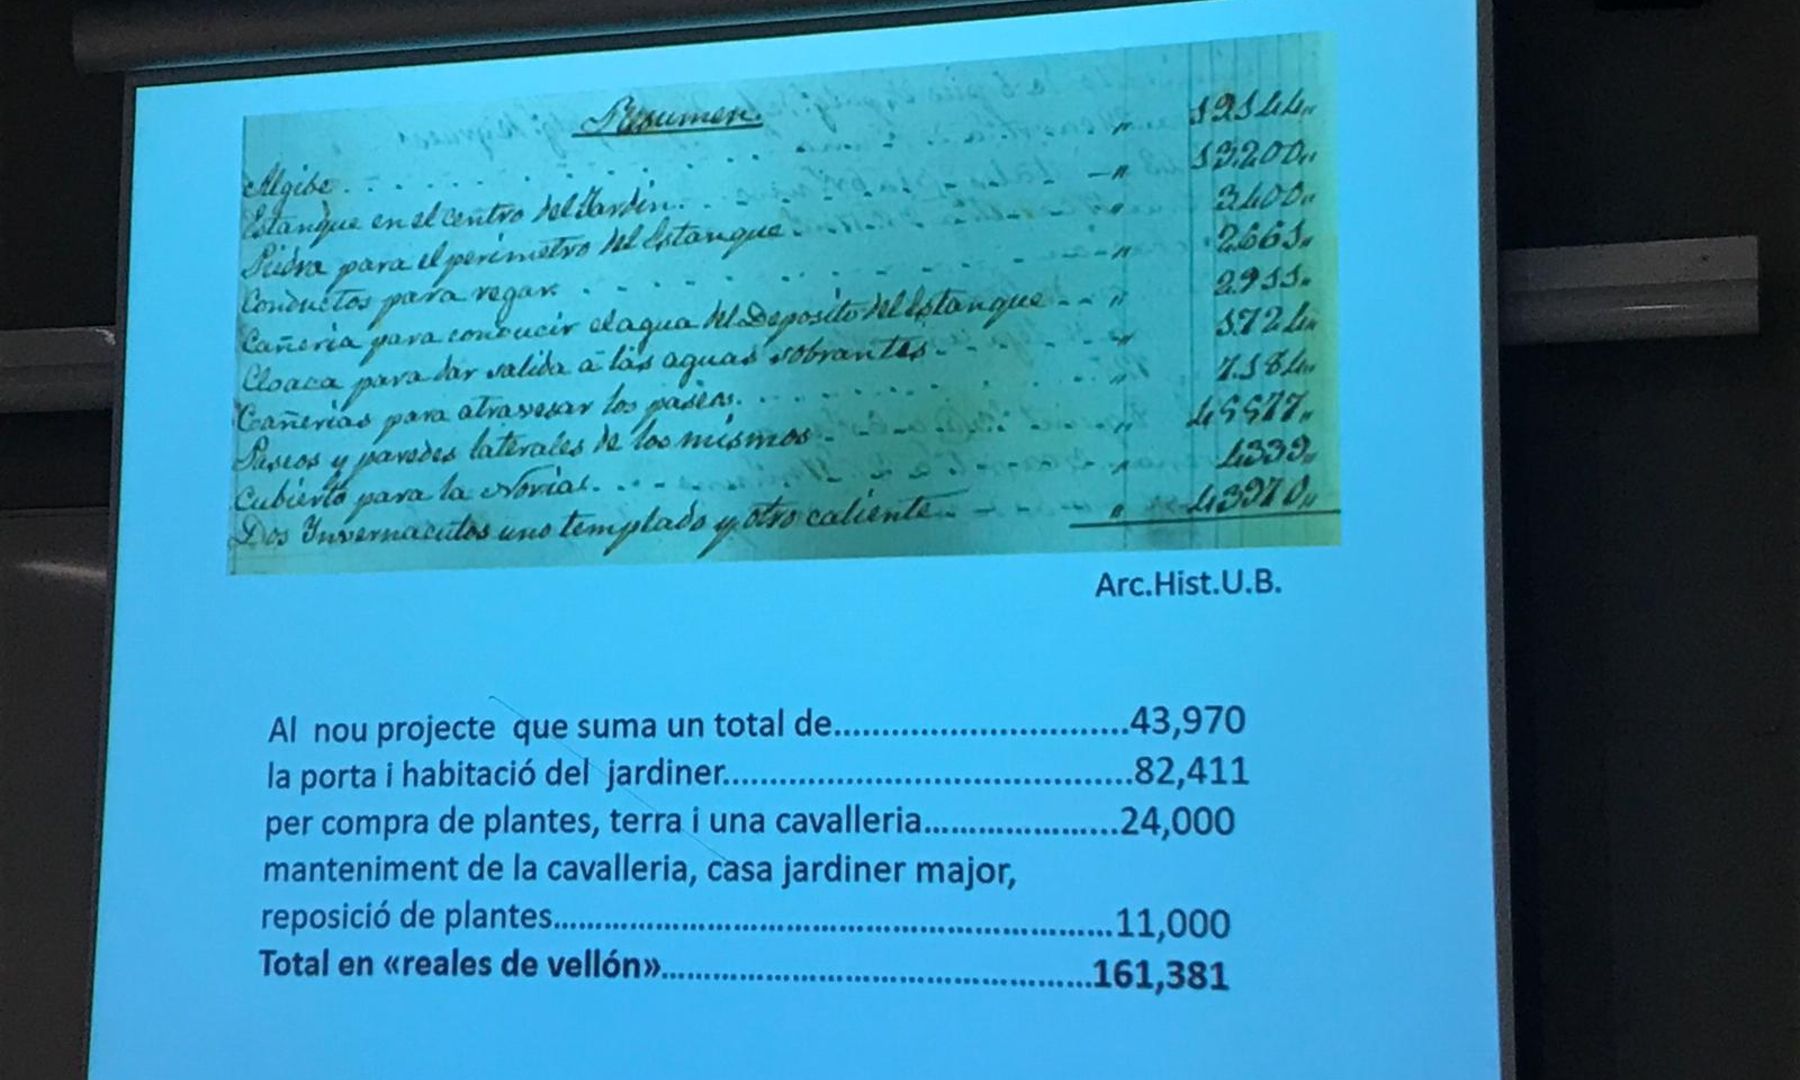 Resumen.
Algibe . . . . . . . . . . . . " 19144"
Estanque en el centro del Jardin. . . . . . . . — " 19.200"
Piedra para el perimetro del Estanque . . . . . . . " 3400"
Conductos para regar . . . . . . . . . . . . "
Cañeria para conducir el agua del Deposito del Estanque - - "
Cloaca para dar salida á las aguas sobrantes. - - - - "
Cañerias para atravesar los paseos. . . . . . . . . "
Paseos y paredes laterales de los mismos . - - - - "
Cubierto para la Norias. . . - - - - - - "
Dos Invernaculos uno templado y otro caliente - - - - "
Arc.Hist.U.B.
Al nou projecte que suma un total de..............................43,970
la porta i habitació del jardiner..........................................82,411
per compra de plantes, terra i una cavalleria....................24,000
manteniment de la cavalleria, casa jardiner major,
reposició de plantes.........................................................11,000
Total en «reales de vellón»............................................161,381